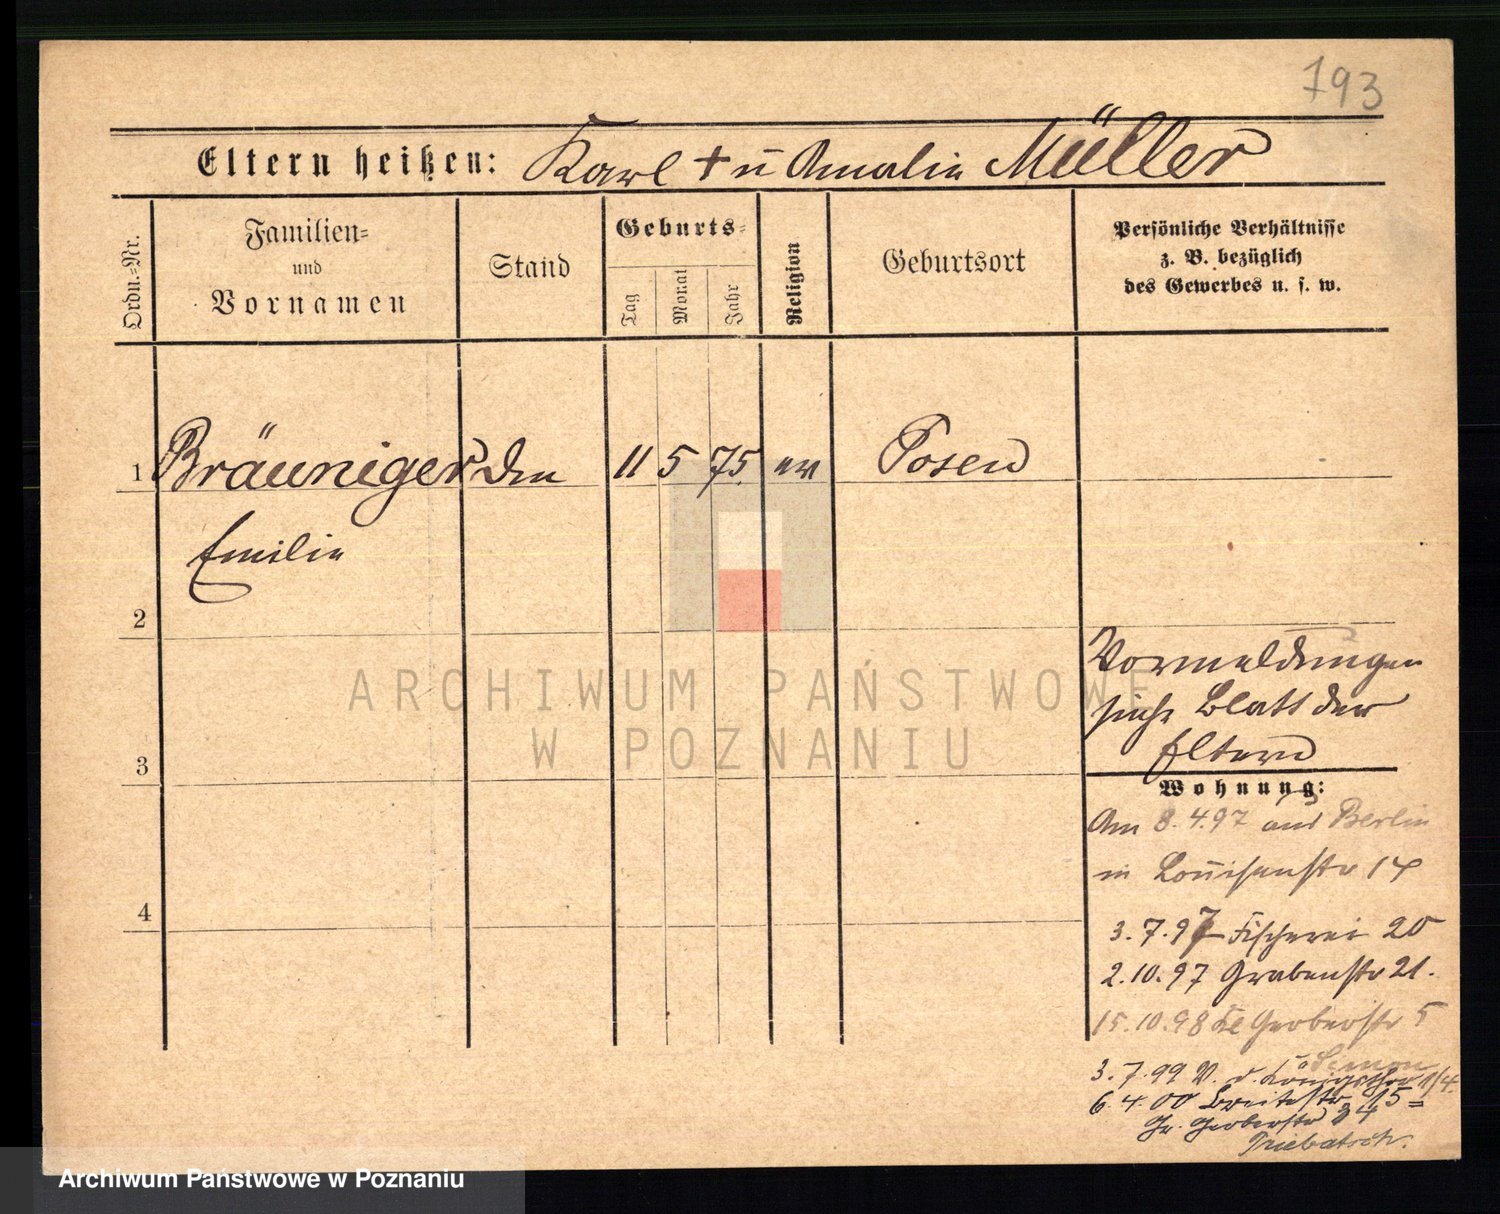 793
Eltern heißen: Karl † u Amalie Müller
Ordn.-Nr.
Familien-
und
Vornamen
Stand
Geburts-
Tag
Monat
Jahr
Religion
Geburtsort
Persönliche Verhältnisse
z. B. bezüglich
des Gewerbes u. s. w.
1 Bräuniger 11 5 75. ev Posen
Emilie
2
Vormeldungen
siehe Blatt der
Eltern
3
Wohnung:
Am 8.4.97 aus Berlin
in Louisenstr 14
4
3.7.97 Fischerei 20
2.10.97 Grabenstr 21.
15.10.98 Kl Gerberstr 5
3.7.99 V. d. Königsthor 1/4.
6.4.00 Breitestr. 15
Gr. Gerberstr 34
ARCHIWUM PAŃSTWOWE
W POZNANIU
Archiwum Państwowe w Poznaniu